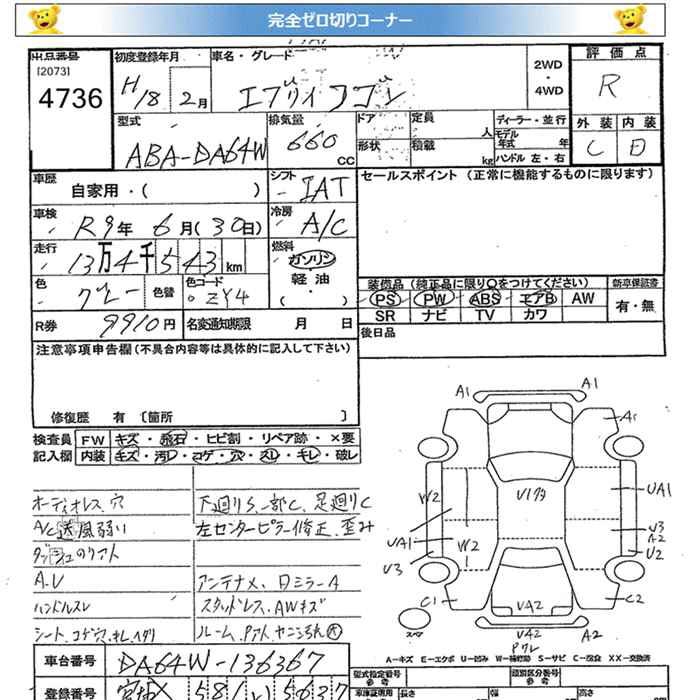 完全ゼロ切りコーナー
出品番号
[2073]
4736
初度登録年月
H/18 2月
車名・グレード
エブリイワゴン
2WD
・
4WD
評価点
R
型式
ABA-DA64W
排気量
660
CC
ドア
形状
定員
人
積載
kg
ディーラー・並行
モデル
年式
年
ハンドル 左・右
外装
内装
C
D
車歴
自家用・( )
シフト
IAT
セールスポイント (正常に機能するものに限ります)
車検
R9年 6月(30日)
冷房
A/C
走行
13万4千543km
燃料
ガソリン
・
軽油
( )
色
グレー
色替
色コード
ZY4
装備品 (純正品に限り○をつけてください)
新車保証書
PS PW ABS エアB AW
SR ナビ TV カワ
有・無
R券 9910円
名変通知期限 月 日
後日品
注意事項申告欄 (不具合内容等は具体的に記入して下さい)
修復歴 有 〔箇所 〕
検査員
記入欄
FW キズ・飛石・ヒビ割・リペア跡・×要
内装 キズ・汚レ・コゲ・穴・スレ・キレ・破レ
オーディオレス、穴
A/C送風弱い
ダッシュのリアト
A.U
ハンドルスレ
シート、コゲ穴、キレ、ヘタリ
下廻りS一部C、足廻りC
左センターピラー修正、歪み
アンテナ×、Dミラー4
スタッドレス、AWキズ
A1
A1
A1
W2
UA1
U3
W2
UA1
U3
A2
U2
C1
C2
UA2
UA2
A2
スペア
A-キズ E-エクボ U-凹み W-補修跡 S-サビ C-腐食 XX-交換済
車台番号
DA64W-136367
登録番号
型式指定番号
参考
類別区分番号
参考
長さ
幅
高さ